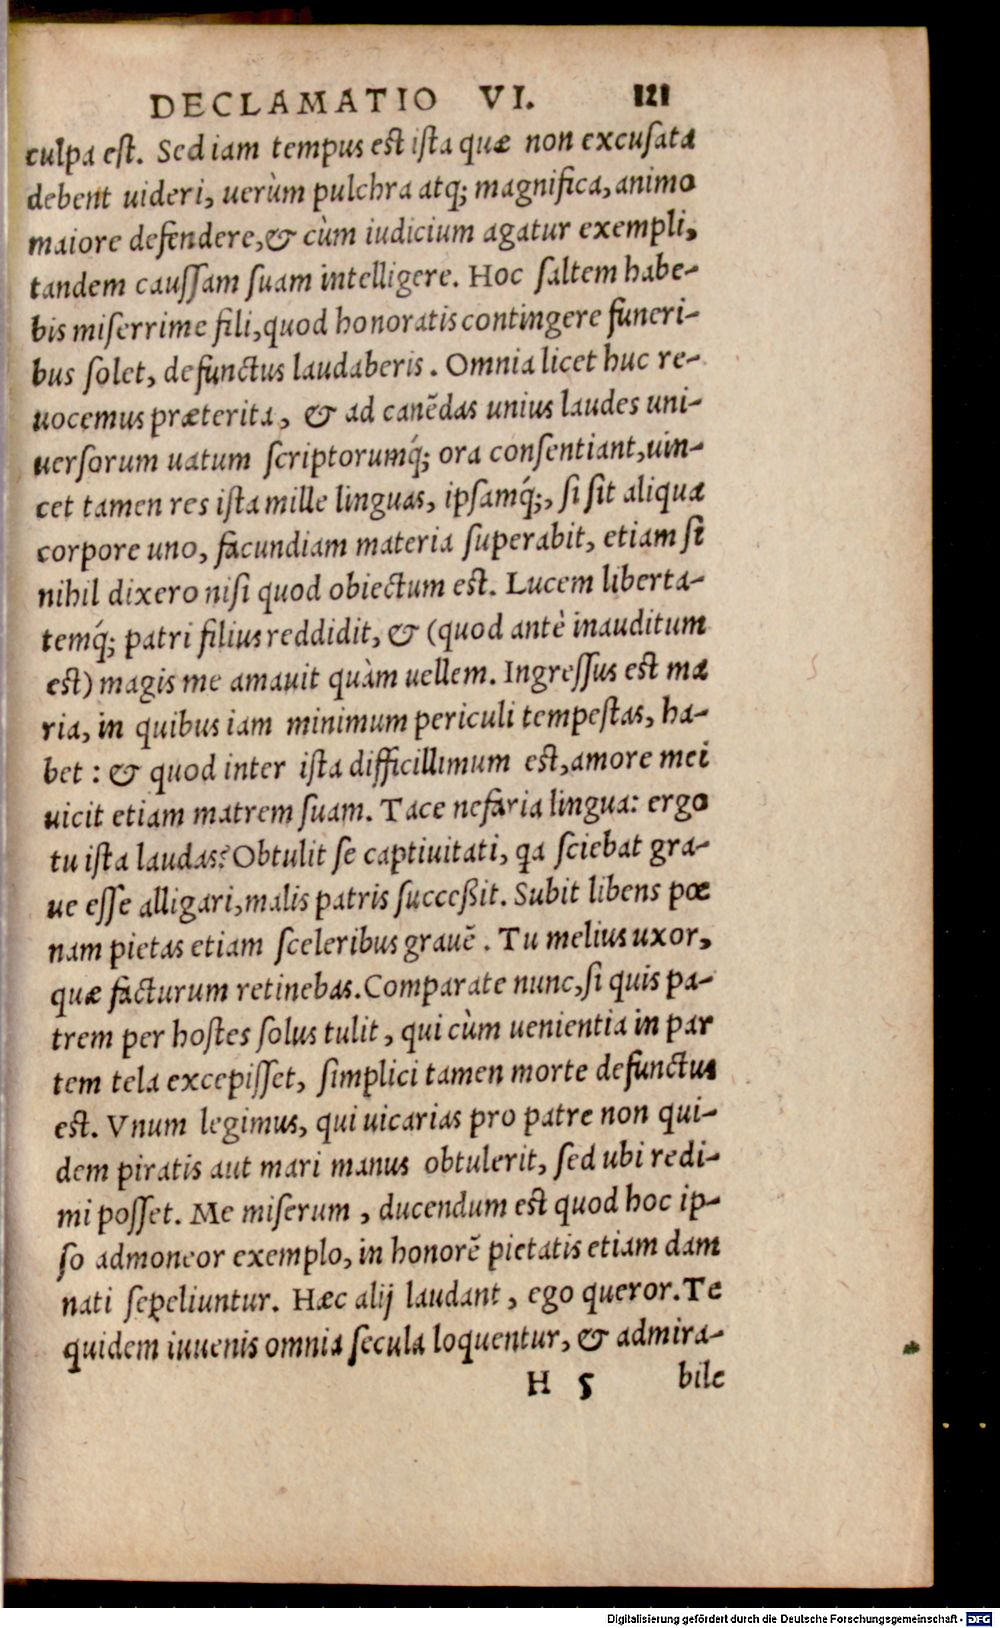 DECLAMATIO VI. 121
culpa est. Sed iam tempus est ista quæ non excusata
debent uideri, uerùm pulchra atq; magnifica, animo
maiore defendere, & cùm iudicium agatur exempli,
tandem caussam suam intelligere. Hoc saltem habe-
bis miserrime fili, quod honoratis contingere funeri-
bus solet, defunctus laudaberis. Omnia licet huc re-
uocemus præterita, & ad canẽdas unius laudes uni-
uersorum uatum scriptorumq́; ora consentiant, uin-
cet tamen res ista mille linguas, ipsamq́;, si sit aliqua
corpore uno, facundiam materia superabit, etiam si
nihil dixero nisi quod obiectum est. Lucem liberta-
temq́; patri filius reddidit, & (quod antè inauditum
est) magis me amauit quàm uellem. Ingressus est ma
ria, in quibus iam minimum periculi tempestas, ha-
bet : & quod inter ista difficillimum est, amore mei
uicit etiam matrem suam. Tace nefaria lingua: ergo
tu ista laudas? Obtulit se captiuitati, qa sciebat gra-
ue esse alligari, malis patris succeßit. Subit libens pœ
nam pietas etiam sceleribus grauẽ. Tu melius uxor,
quæ facturum retinebas. Comparate nunc, si quis pa-
trem per hostes solus tulit, qui cùm uenientia in par
tem tela excepisset, simplici tamen morte defunctus
est. Vnum legimus, qui uicarias pro patre non qui-
dem piratis aut mari manus obtulerit, sed ubi redi-
mi posset. Me miserum, ducendum est quod hoc ip-
so admoneor exemplo, in honorẽ pietatis etiam dam
nati sepeliuntur. Hæc alij laudant, ego queror. Te
quidem iuuenis omnia secula loquentur, & admira-
H 5 bile
Digitalisierung gefördert durch die Deutsche Forschungsgemeinschaft - DFG